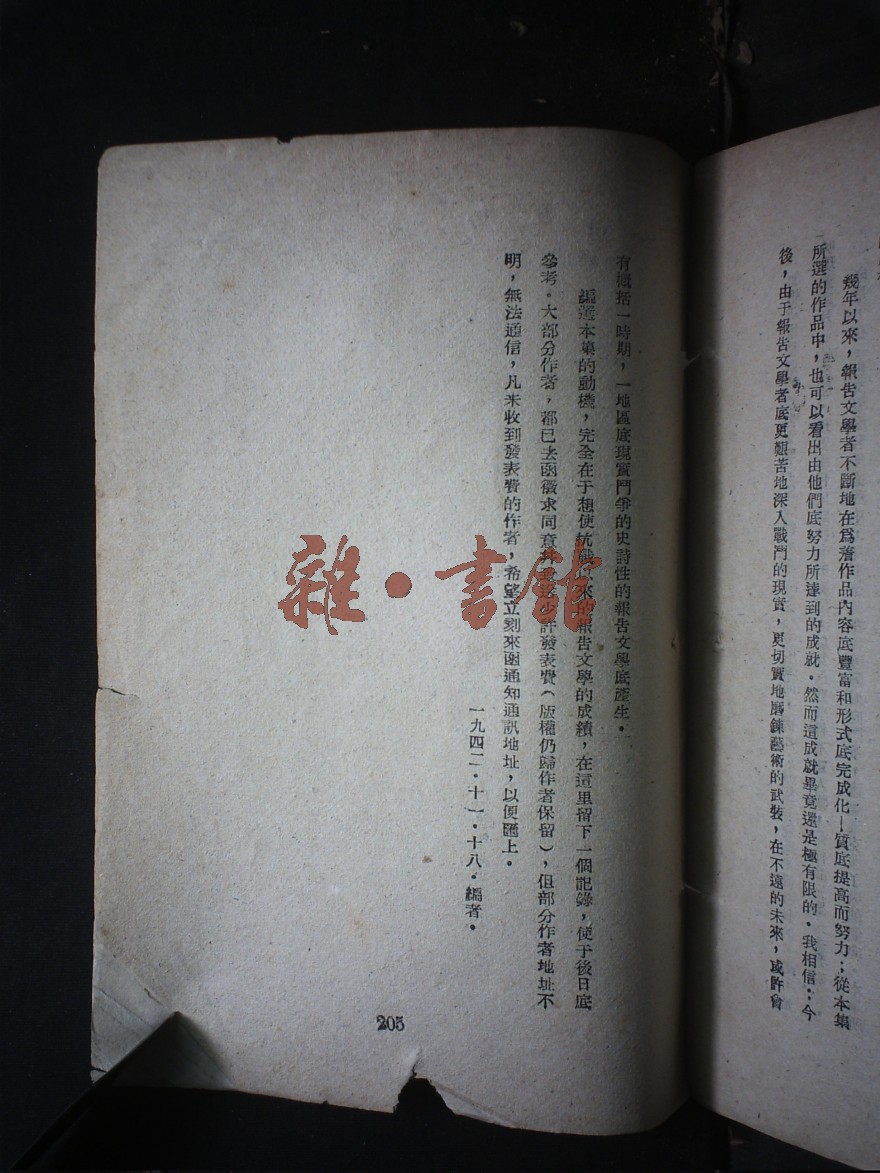 幾年以來，報告文學者不斷地在爲著作品內容底豐富和形式底完成化—質底提高而努力；從本集
所選的作品中，也可以看出由他們底努力所達到的成就。然而這成就畢竟還是極有限的。我相信：今
後，由于報告文學者底更艱苦地深入戰鬥的現實，更切實地磨鍊藝術的武裝，在不遠的未來，或許會
有概括一時期，一地區底現實鬥爭的史詩性的報告文學底產生。
編選本集的動機，完全在于想使抗戰以來的報告文學的成績，在這里留下一個記錄，使于後日底
參考。大部分作者，都已去函徵求同意 少許發表費（版權仍歸作者保留），但部分作者地址不
明，無法通信，凡未收到發表費的作者，希望立刻來函通知通訊地址，以便匯上。
一九四二·十一·十八·編者。
205
雜·書館